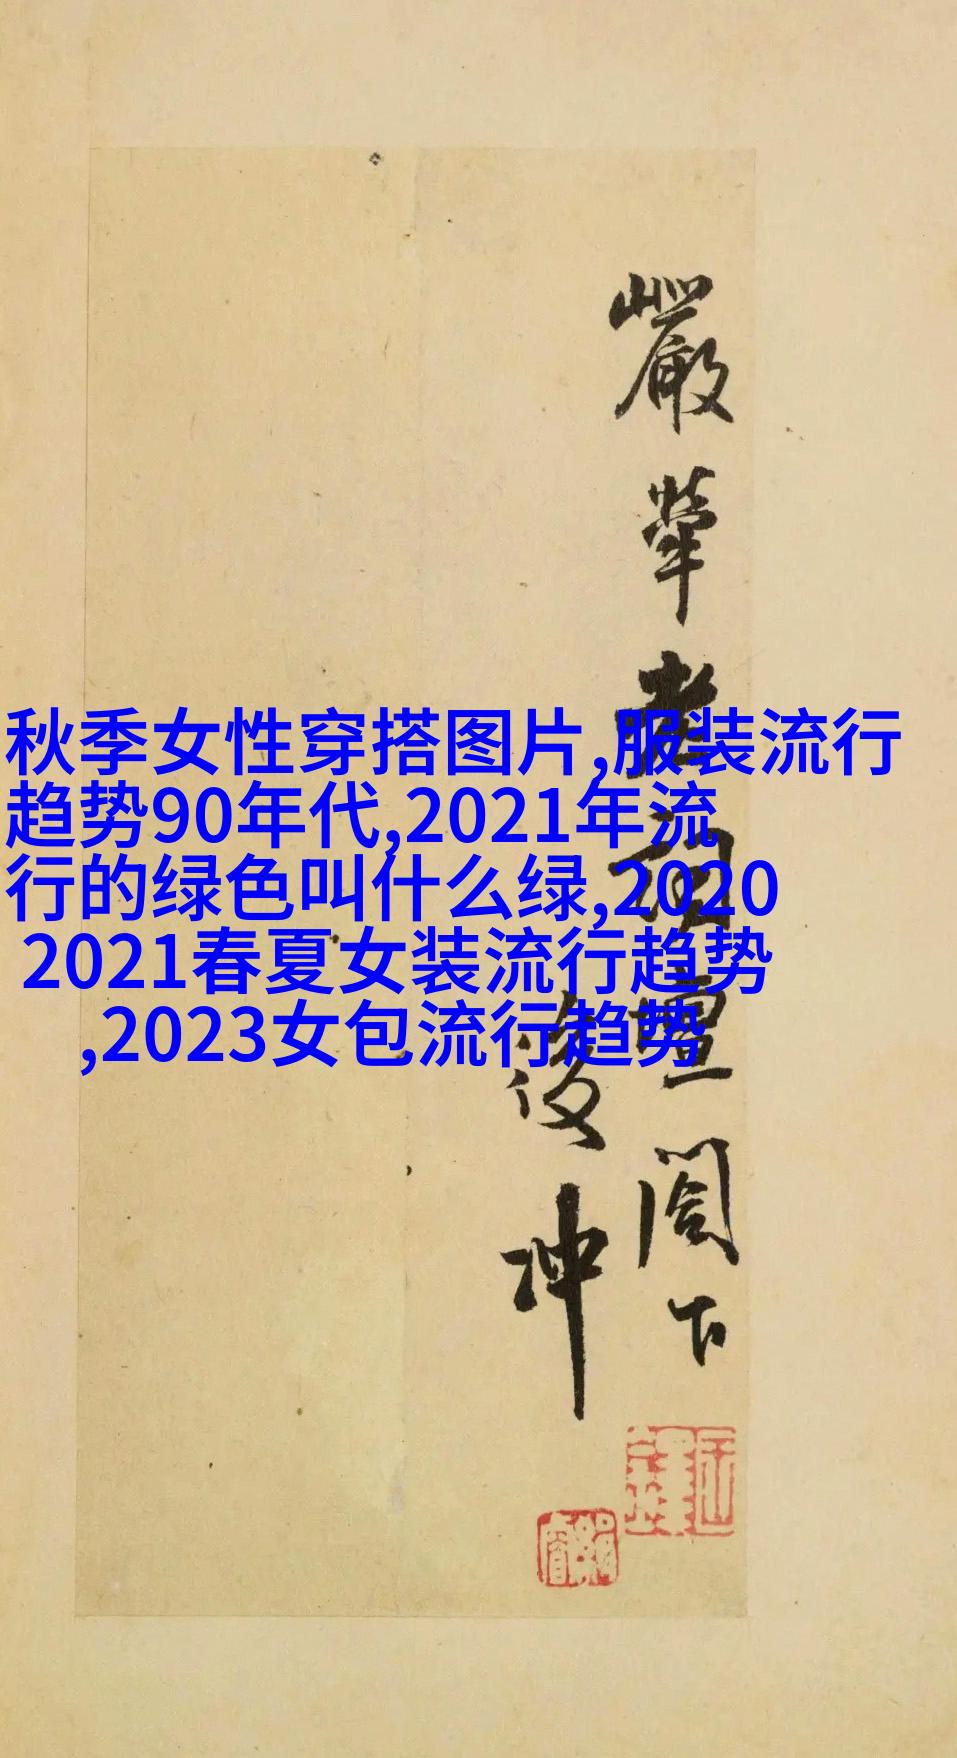 秋季女性穿搭图片,服装流行
趋势90年代,2021年流
行的绿色叫什么绿,2020
2021春夏女装流行趋势
,2023女包流行趋势
嚴犖老詞壇閣下
後冲